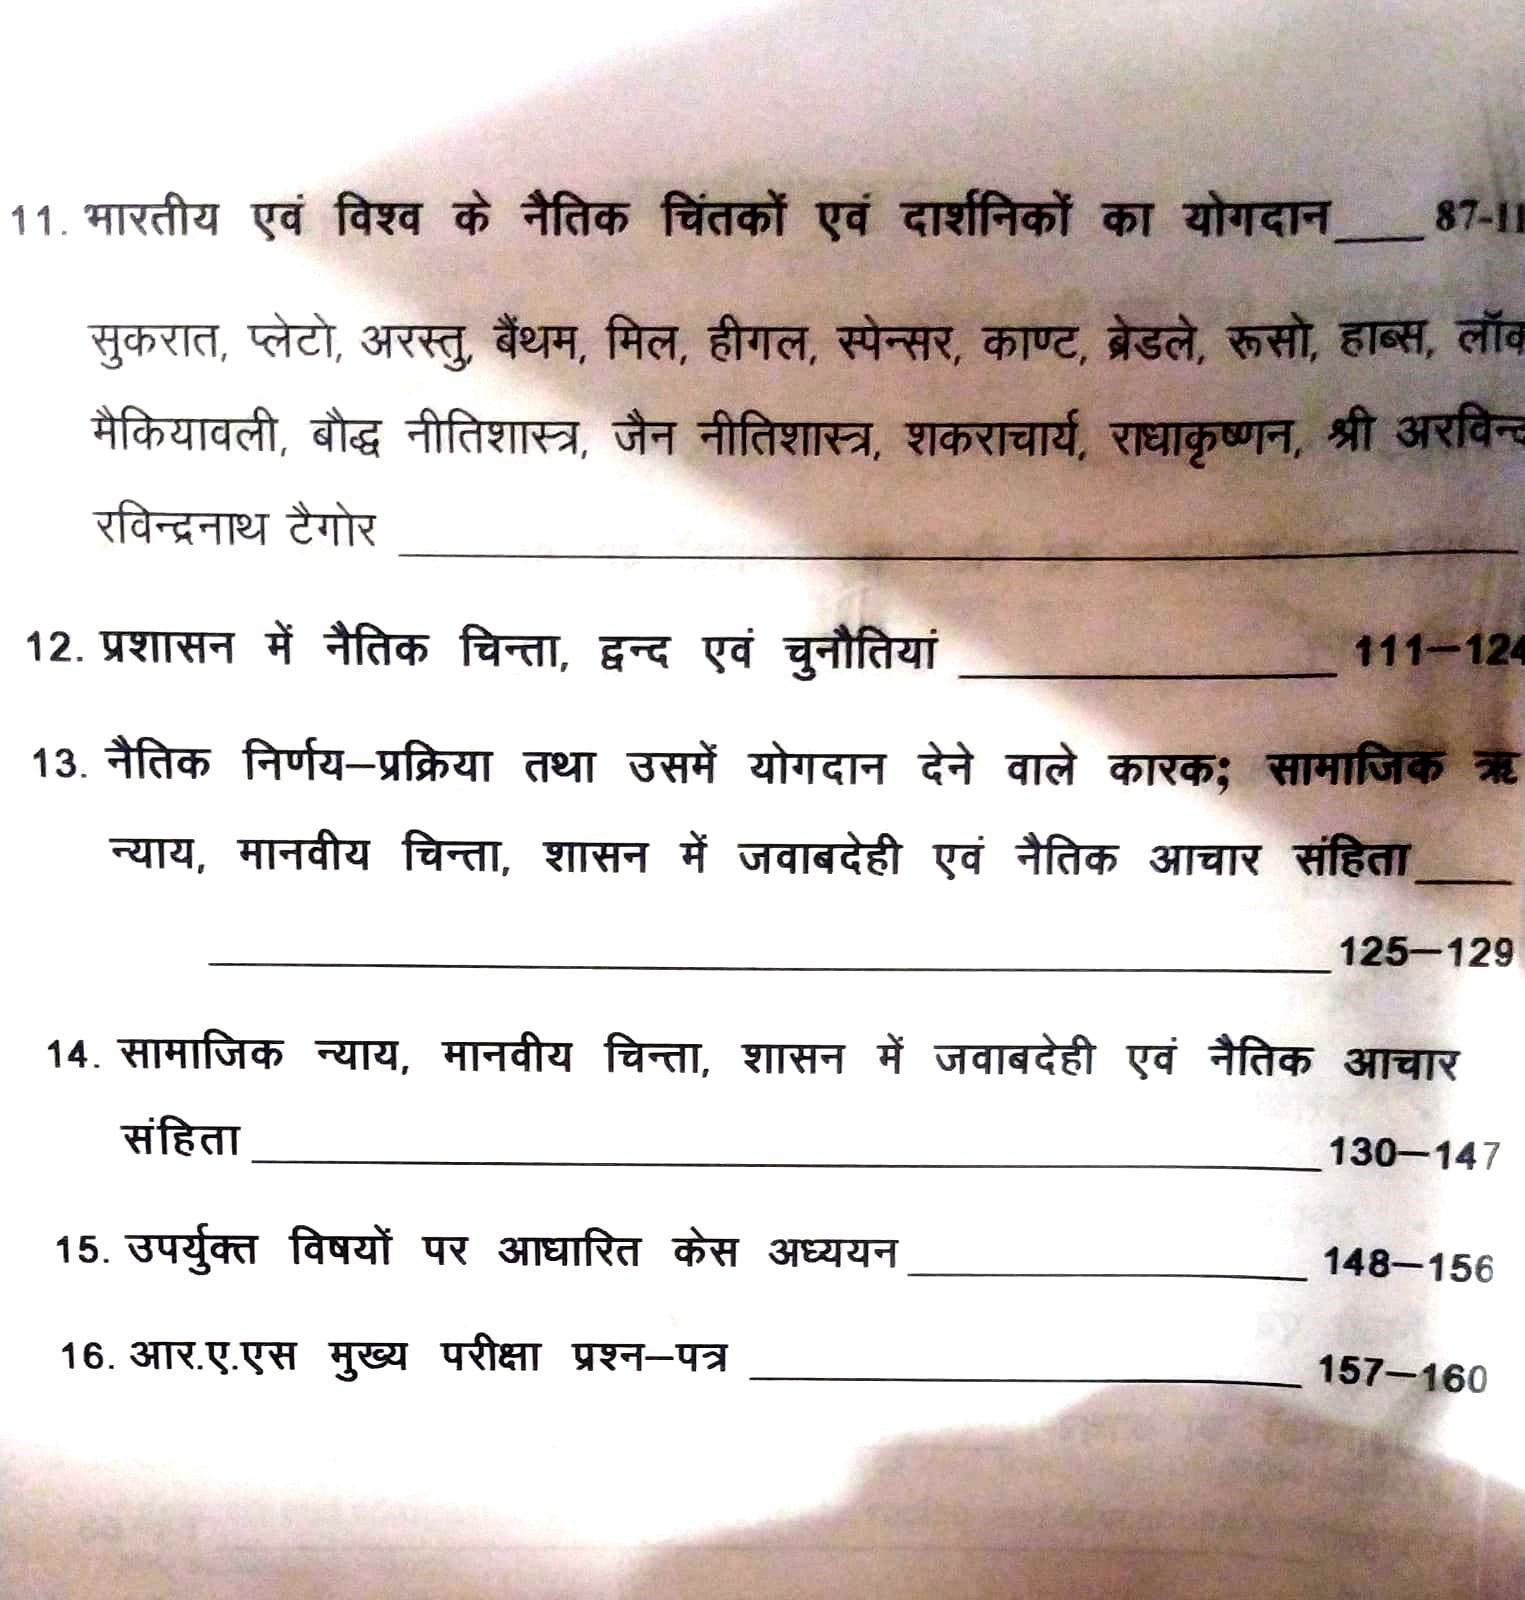 11. भारतीय एवं विश्व के नैतिक चिंतकों एवं दार्शनिकों का योगदान____ 87-11
सुकरात, प्लेटो, अरस्तु, बैंथम, मिल, हीगल, स्पेन्सर, काण्ट, ब्रेडले, रूसो, हाब्स, लॉक
मैकियावली, बौद्ध नीतिशास्त्र, जैन नीतिशास्त्र, शकराचार्य, राधाकृष्णन, श्री अरविन्द
रविन्द्रनाथ टैगोर
12. प्रशासन में नैतिक चिन्ता, द्वन्द एवं चुनौतियां 111–124
13. नैतिक निर्णय–प्रक्रिया तथा उसमें योगदान देने वाले कारक; सामाजिक
न्याय, मानवीय चिन्ता, शासन में जवाबदेही एवं नैतिक आचार संहिता
125–129
14. सामाजिक न्याय, मानवीय चिन्ता, शासन में जवाबदेही एवं नैतिक आचार
संहिता 130–147
15. उपर्युक्त विषयों पर आधारित केस अध्ययन 148–156
16. आर.ए.एस मुख्य परीक्षा प्रश्न–पत्र 157–160